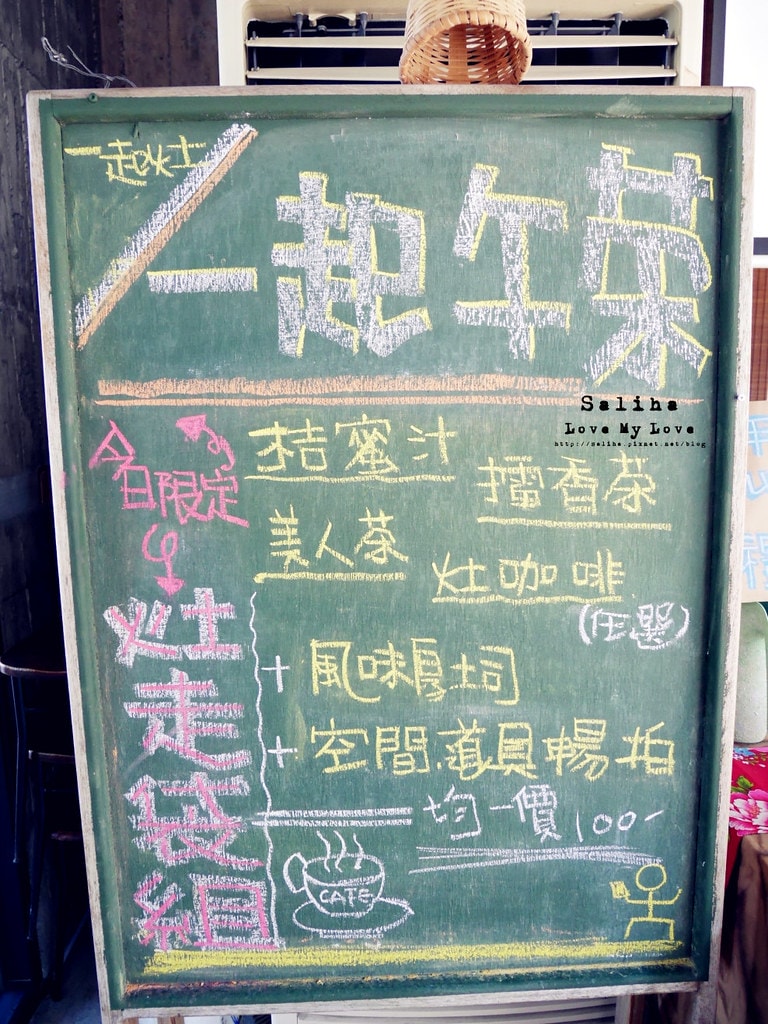 一起灶
一起午茶
Saliha
Love My Love
http://saliha.pixnet.net/blog
今日限定
桔蜜汁
擂香茶
美人茶
灶咖啡
(任選)
灶走袋組
+ 風味厚土司
+ 空間道具暢拍
均一價100-
CAFE